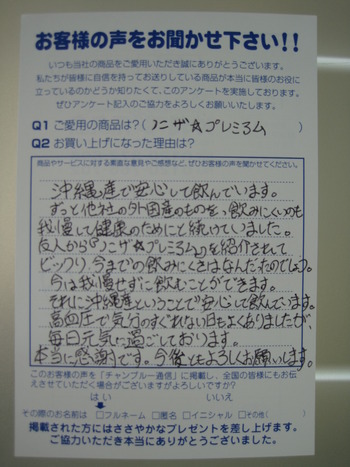 お客様の声をお聞かせ下さい!!
いつも当社の商品をご愛用いただき誠にありがとうございます。
私たちが皆様に自信を持ってお送りしている商品が本当に皆様のお役に
立っているのかどうか知りたくて、このアンケートを実施しております。
ぜひアンケート記入のご協力をよろしくお願いいたします。
Q1 ご愛用の商品は?(ノニザ☆プレミアム)
Q2 お買い上げになった理由は?
商品やサービスに対する素直な意見やご感想など、ぜひお客様の声を聞かせてください。
沖縄産で安心して飲んでいます。
ずっと他社の外国産のものを、飲みにくいのも
我慢して健康のためにと続けていました。
友人から『ノニザ☆プレミアム』を紹介されて
ビックリ今までの飲みにくさはなんだったのでしょう。
今は我慢せずに飲むことができます。
それに沖縄産ということで安心して飲んでいます。
高血圧で気分のすぐれない日もよくありましたが、
毎日元気に過ごしております。
本当に感謝です。今後ともよろしくお願いします。
このお客様の声を「チャンプルー通信」に掲載し、全国の皆様にもお伝
えさせていただく場合がございますがよろしいですか?
はい いいえ
その際のお名前は □フルネーム □匿名 □イニシャル □その他( )
掲載された方にはささやかなプレゼントを差し上げます。
ご協力いただき本当にありがとうございました。